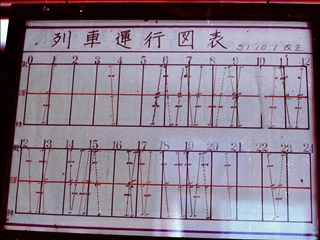 列車運行図表
51.10.1改正
0 1 2 3 4 5 6 7 8 9 10 11 12
12 13 14 15 16 17 18 19 20 21 22 23 24